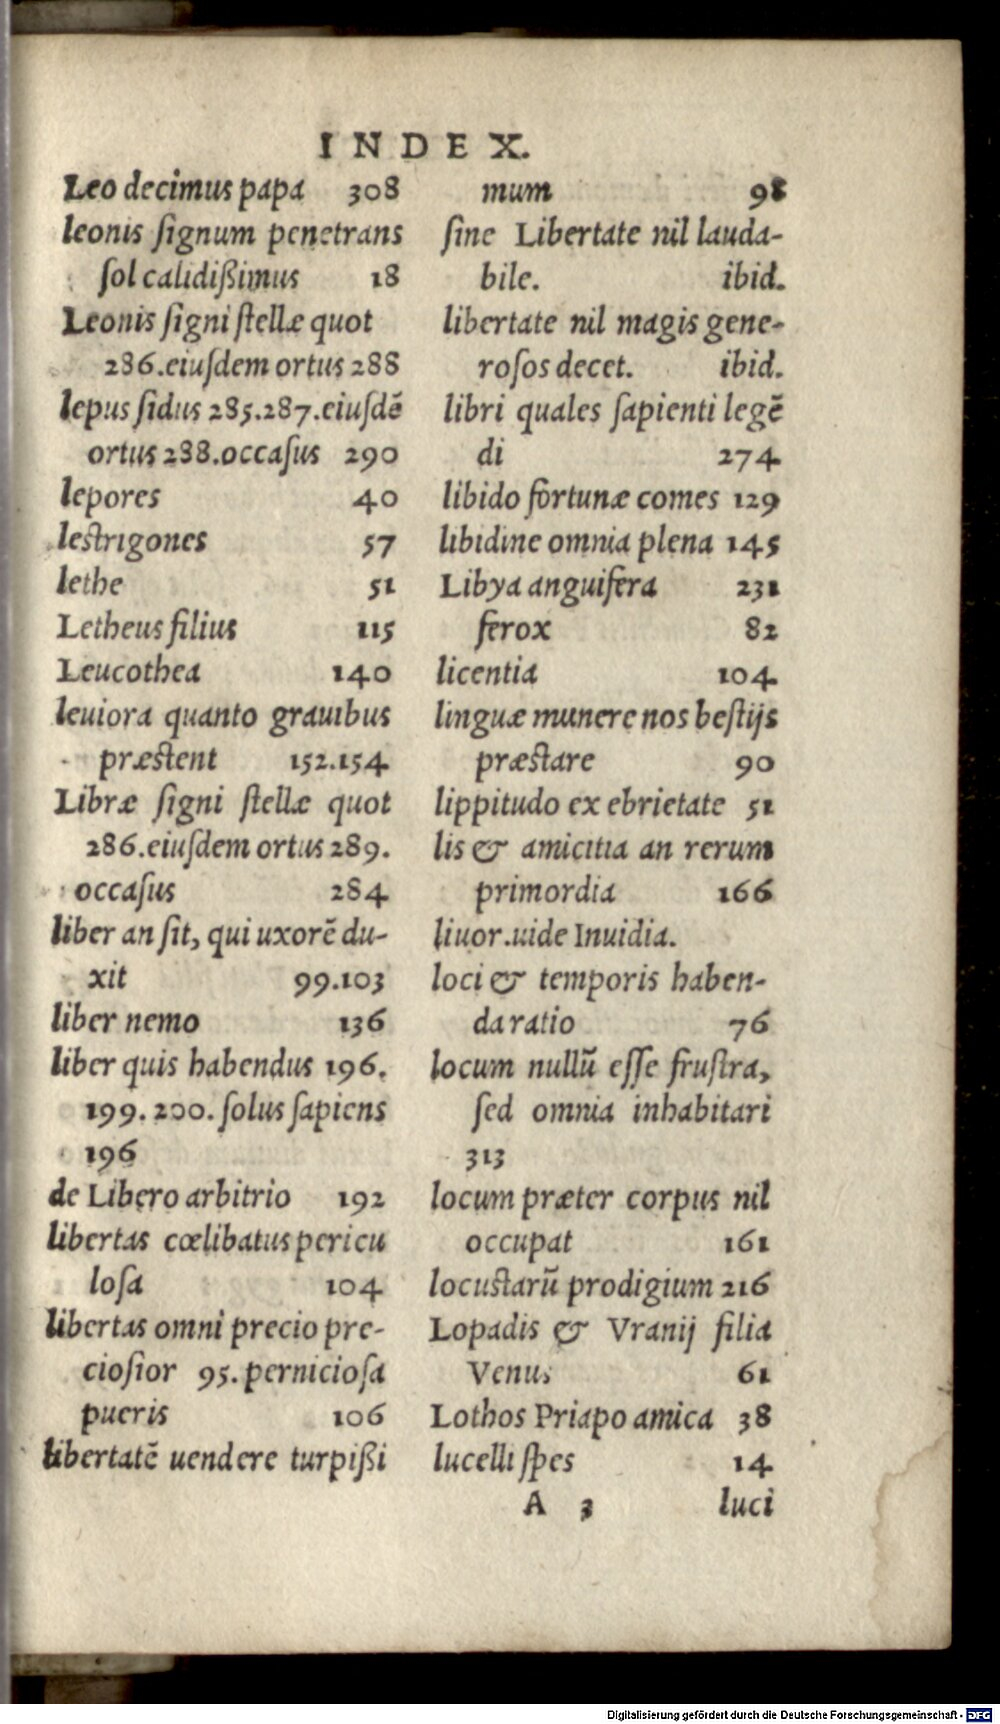 INDEX.
Leo decimus papa 308
leonis ſignum penetrans
ſol calidißimus 18
Leonis ſigni ſtellæ quot
286.eiuſdem ortus 288
lepus ſidus 285.287.eiuſdē
ortus 288.occaſus 290
lepores 40
leſtrigones 57
lethe 51
Letheus filius 115
Leucothea 140
leuiora quanto grauibus
præſtent 152.154
Libræ ſigni ſtellæ quot
286.eiuſdem ortus 289.
occaſus 284
liber an ſit, qui uxorē du-
xit 99.103
liber nemo 136
liber quis habendus 196.
199.200.ſolus ſapiens
196
de Libero arbitrio 192
libertas cœlibatus pericu
loſa 104
libertas omni precio pre-
cioſior 95.pernicioſa
pueris 106
libertatē uendere turpißi
mum 98
ſine Libertate nil lauda-
bile. ibid.
libertate nil magis gene-
roſos decet. ibid.
libri quales ſapienti legē
di 274
libido fortunæ comes 129
libidine omnia plena 145
Libya anguifera 231
ferox 82
licentia 104
linguæ munere nos beſtijs
præſtare 90
lippitudo ex ebrietate 51
lis & amicitia an rerum
primordia 166
liuor.uide Inuidia.
loci & temporis haben-
da ratio 76
locum nullū eſſe fruſtra,
ſed omnia inhabitari
313
locum præter corpus nil
occupat 161
locuſtarū prodigium 216
Lopadis & Vranij filia
Venus 61
Lothos Priapo amica 38
lucelli ſpes 14
A 3 luci
Digitalisierung gefördert durch die Deutsche Forschungsgemeinschaft - DFG